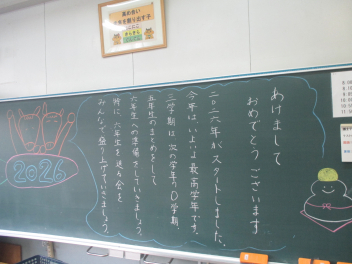 あけまして
おめでとう ございます
二〇二六年がスタートしました。
今年は、いよいよ最高学年です。
三学期は 次の学年の0学期。
五年生のまとめをして
六年生への準備をしていきましょう。
特に、六年生を送る会を
みんなで盛り上げていきましょう。
2026